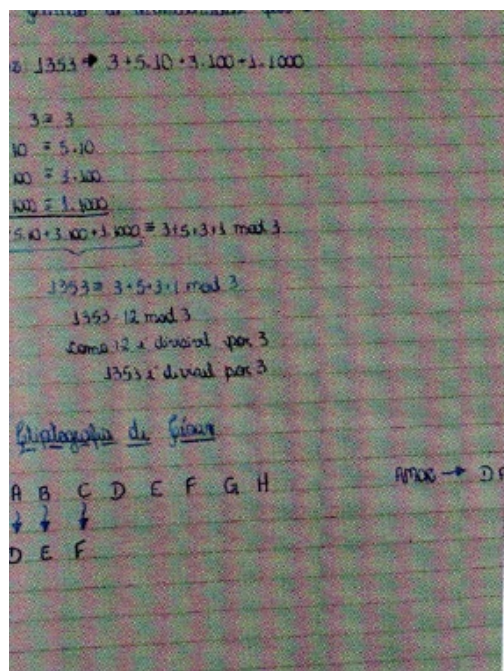 1353 → 3+5.10+3.100+1.1000
3 ≡ 3
10 ≡ 5.10
100 ≡ 3.100
1000 ≡ 1.1000
5.10+3.100+1.1000 ≡ 3+5+3+1 mod 3
1353 ≡ 3+5+3+1 mod 3
1353 ≡ 12 mod 3
como 12 é divisível por 3
1353 é por 3
de César
A B C D E F G H
AMOR → D
D E F